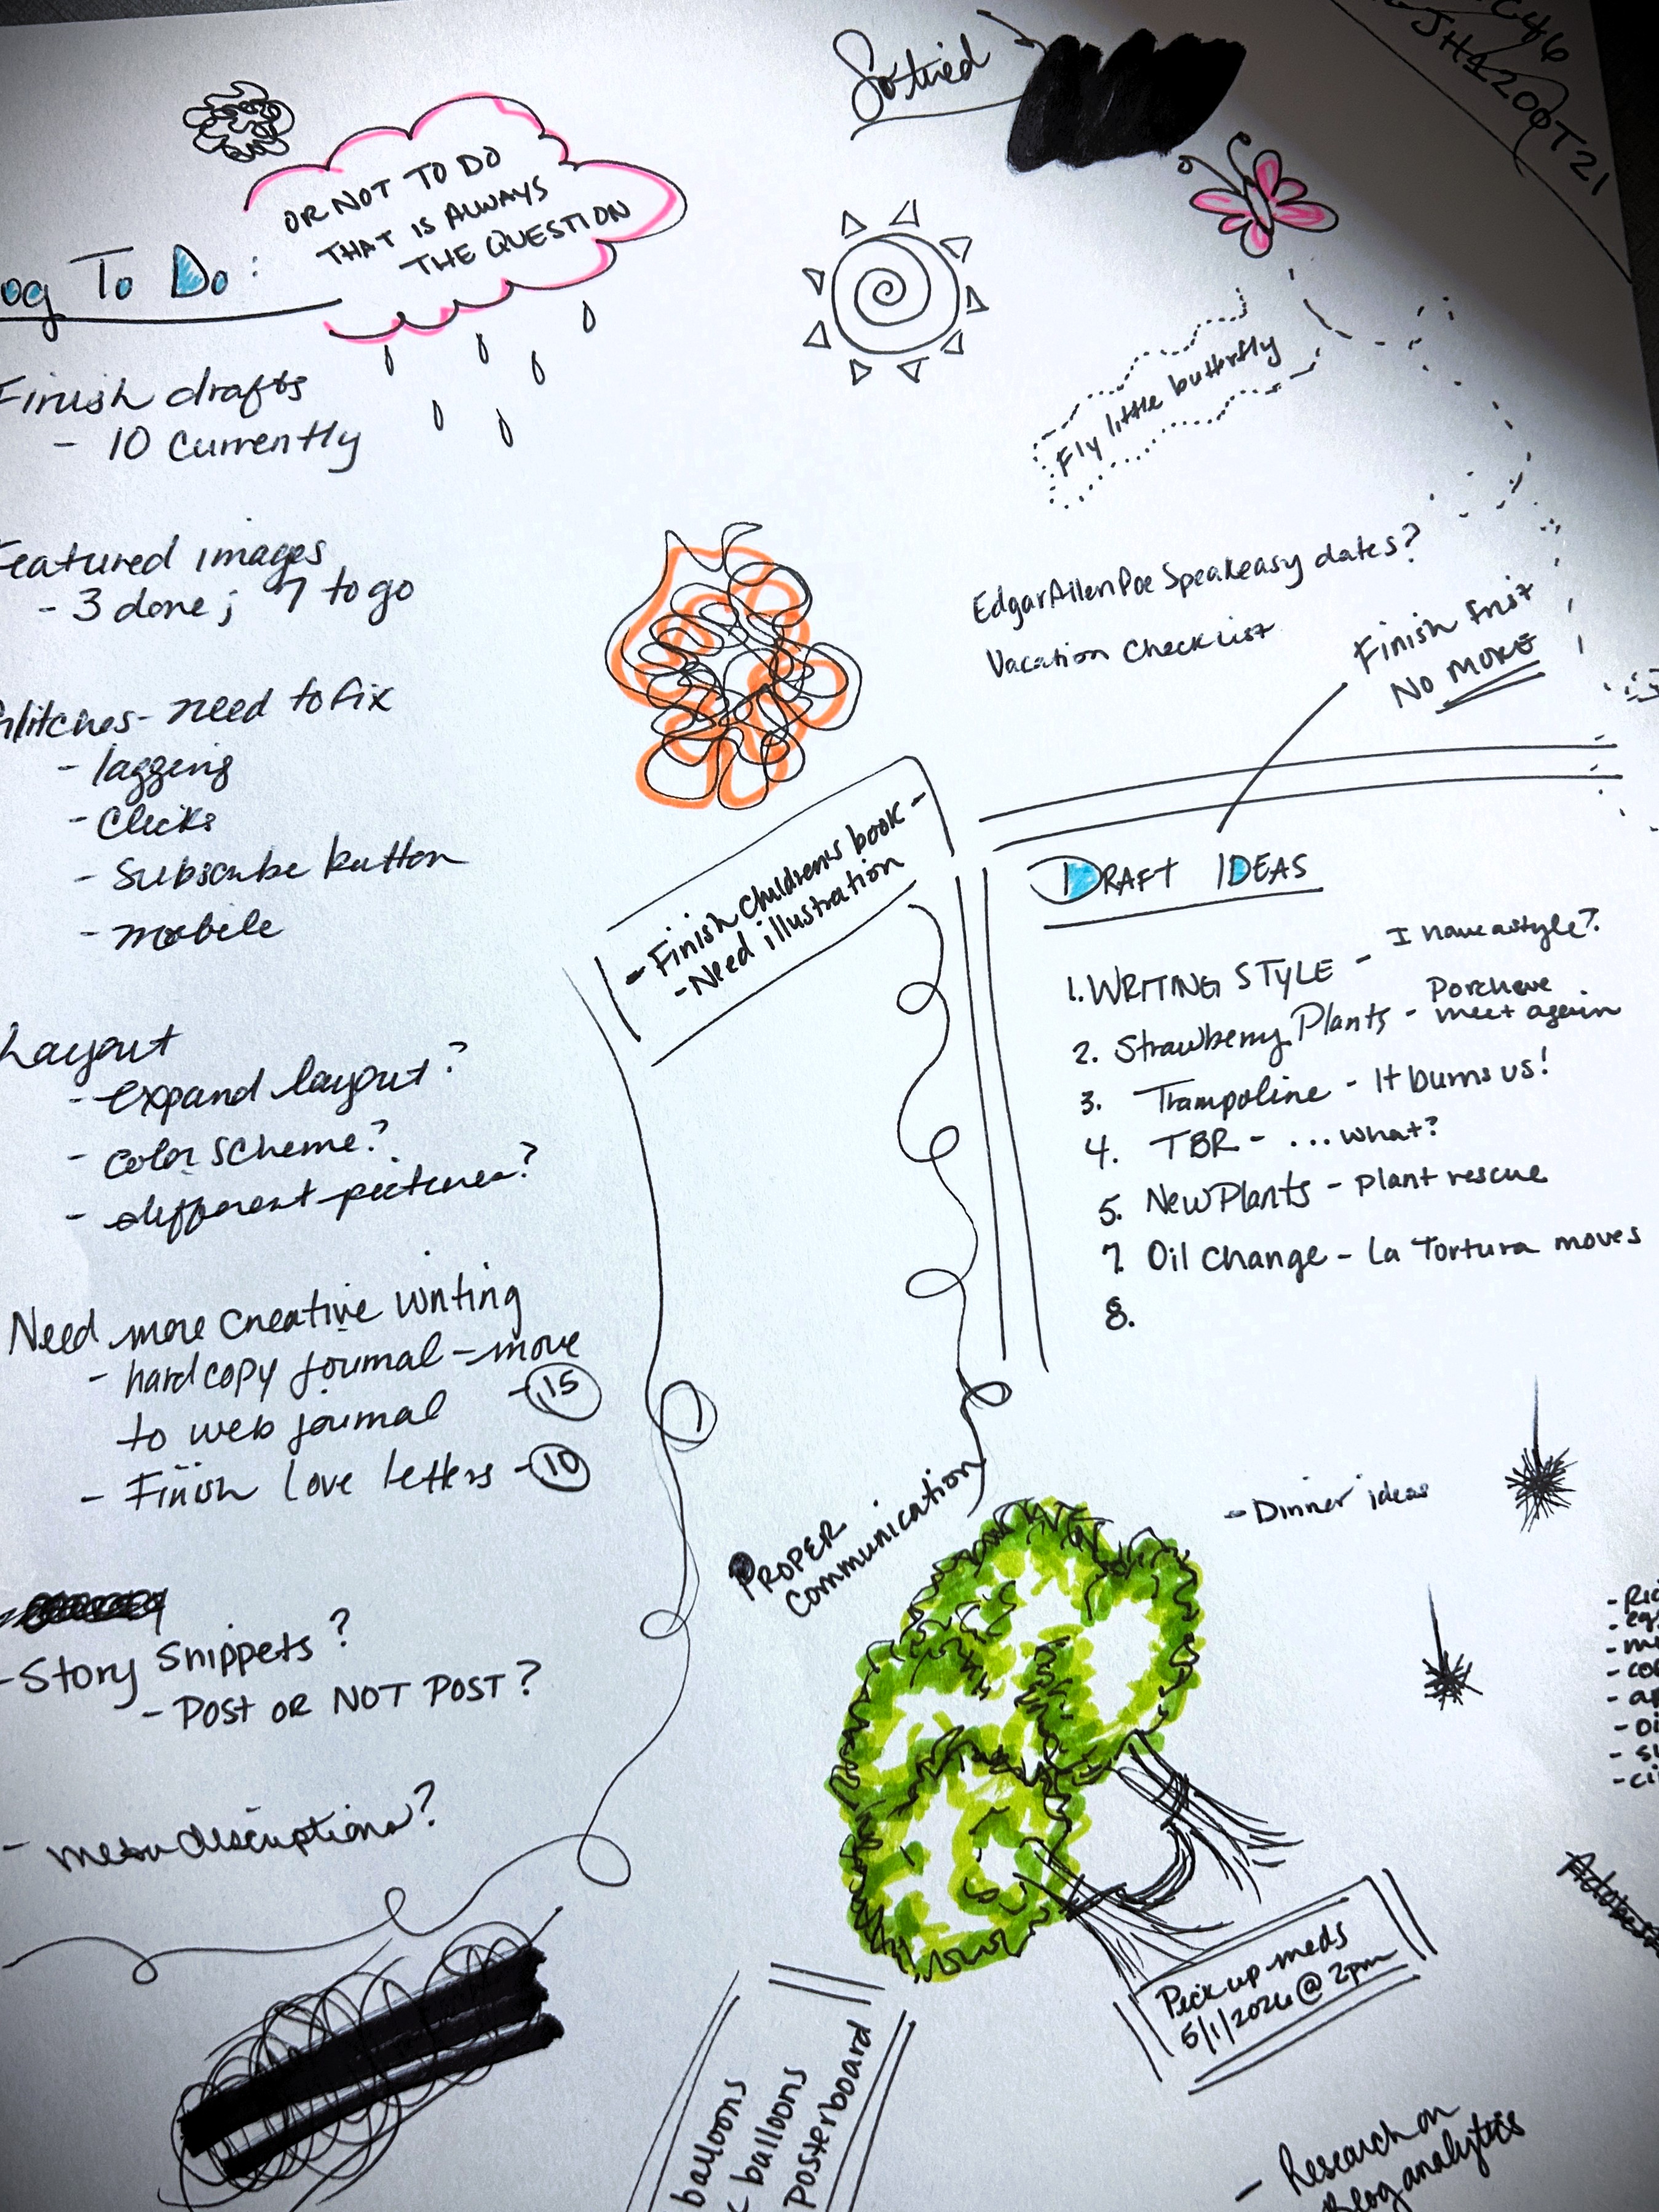 So tired
C46
JH1200T21
OR NOT TO DO
THAT IS ALWAYS
THE QUESTION
og To Do:
Finish drafts
- 10 currently
Featured images
- 3 done; 7 to go
Glitches- need to fix
- lagging
- Clicks
- Subscribe button
- mobile
Layout
- expand layout?
- color scheme?
- different pictures?
Need more creative writing
- hardcopy journal - move
to web journal - 15
- Finish love letters - 10
- Story Snippets?
- POST OR NOT POST?
- menu descriptions?
Fly little butterfly
EdgarAllenPoe Speakeasy dates?
Vacation Checklist
Finish first
NO MORE
- Finish children's book -
- Need illustration
DRAFT IDEAS
1. WRITING STYLE - I have a style?
2. Strawberry Plants - Porcheve
meet again
3. Trampoline - It burns us!
4. TBR - ...what?
5. New Plants - plant rescue
7. Oil Change - La Tortura moves
8.
PROPER
communication
- Dinner ideas
Pick up meds
5/1/2026 @ 2pm
balloons
balloons
posterboard
- Research on
Blog analytics